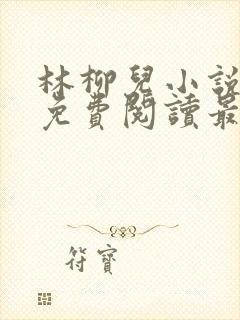 林柳兒小說
免費閱讀最
符寶